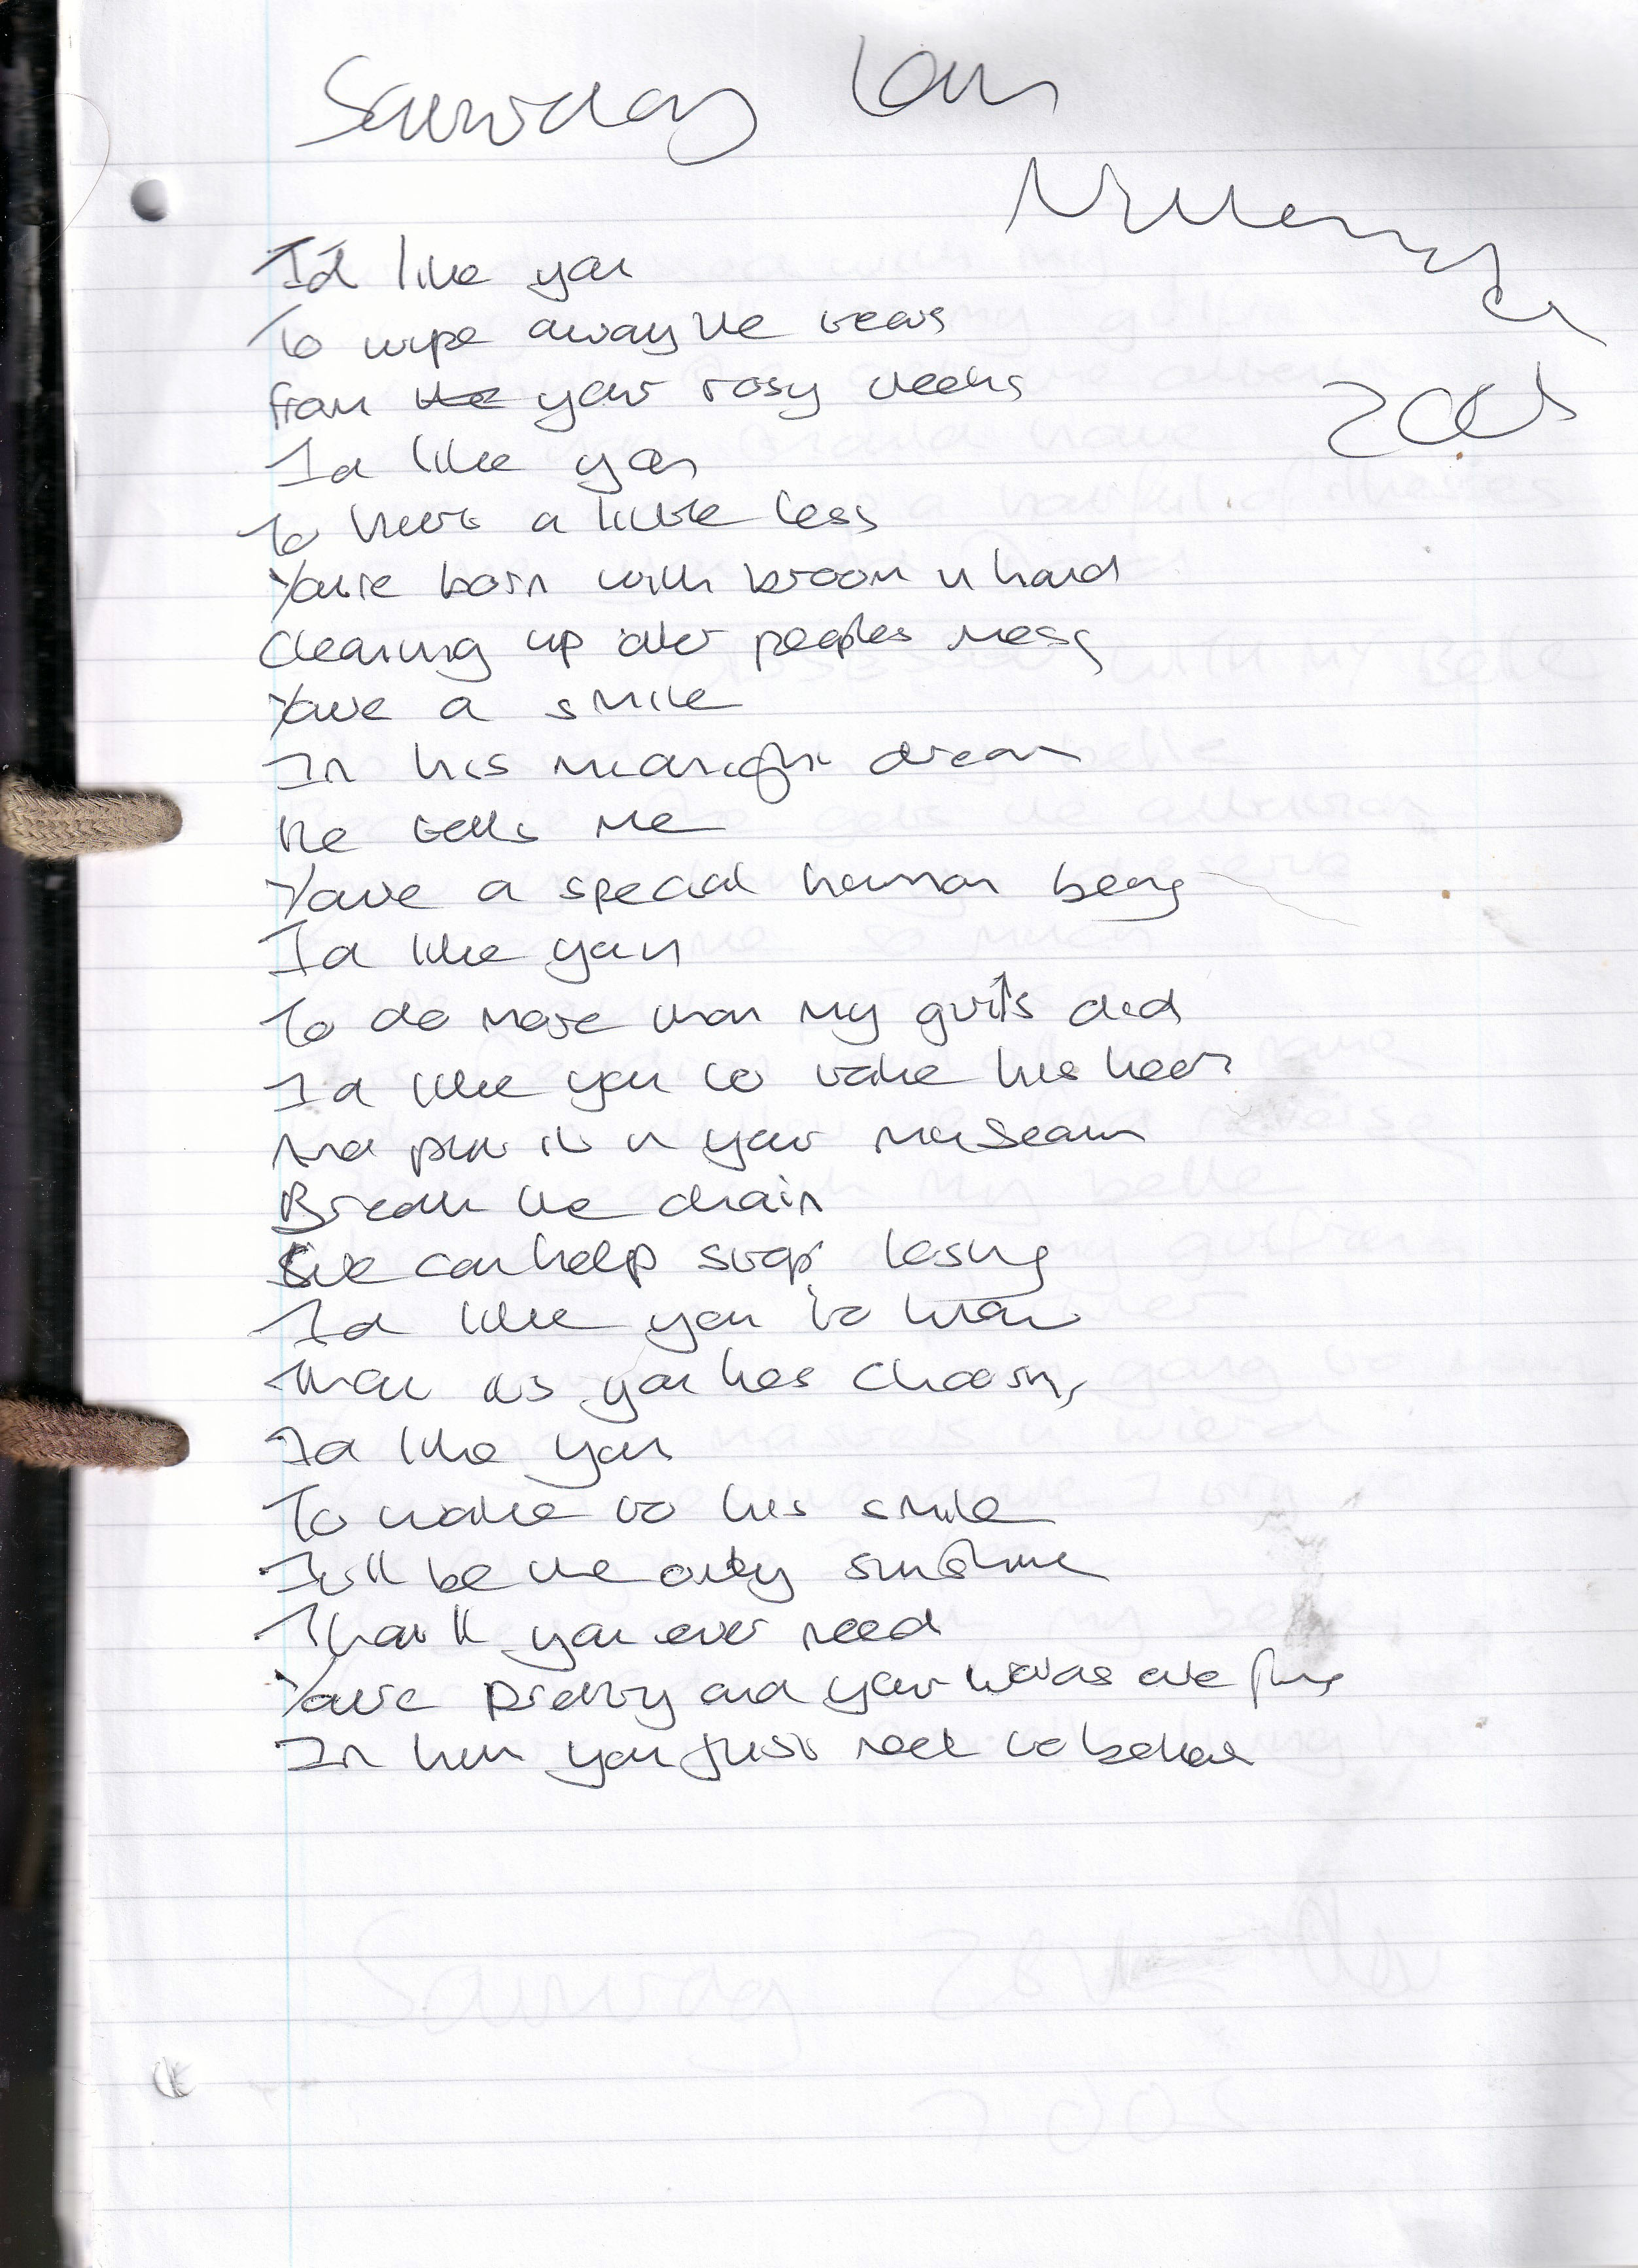 Saturday
2005
I'd like you
To wipe away the tears
from the your rosy cheeks
Id like you
To hurt a little less
You're born with broom in hand
Cleaning up other peoples mess
Youre a smile
In his midnight dream
He tells me
Youre a special human being
Id like you
To do more than my guilts did
Id like you to take his heart
And put it in your museum
Break the chain
We can help stop losing
Id like you to know
That its you hes choosing
Id like you
To wake to his smile
Itll be the only sunshine
Thatll you ever need
Youre pretty and your words are fine
In him you just need to believe